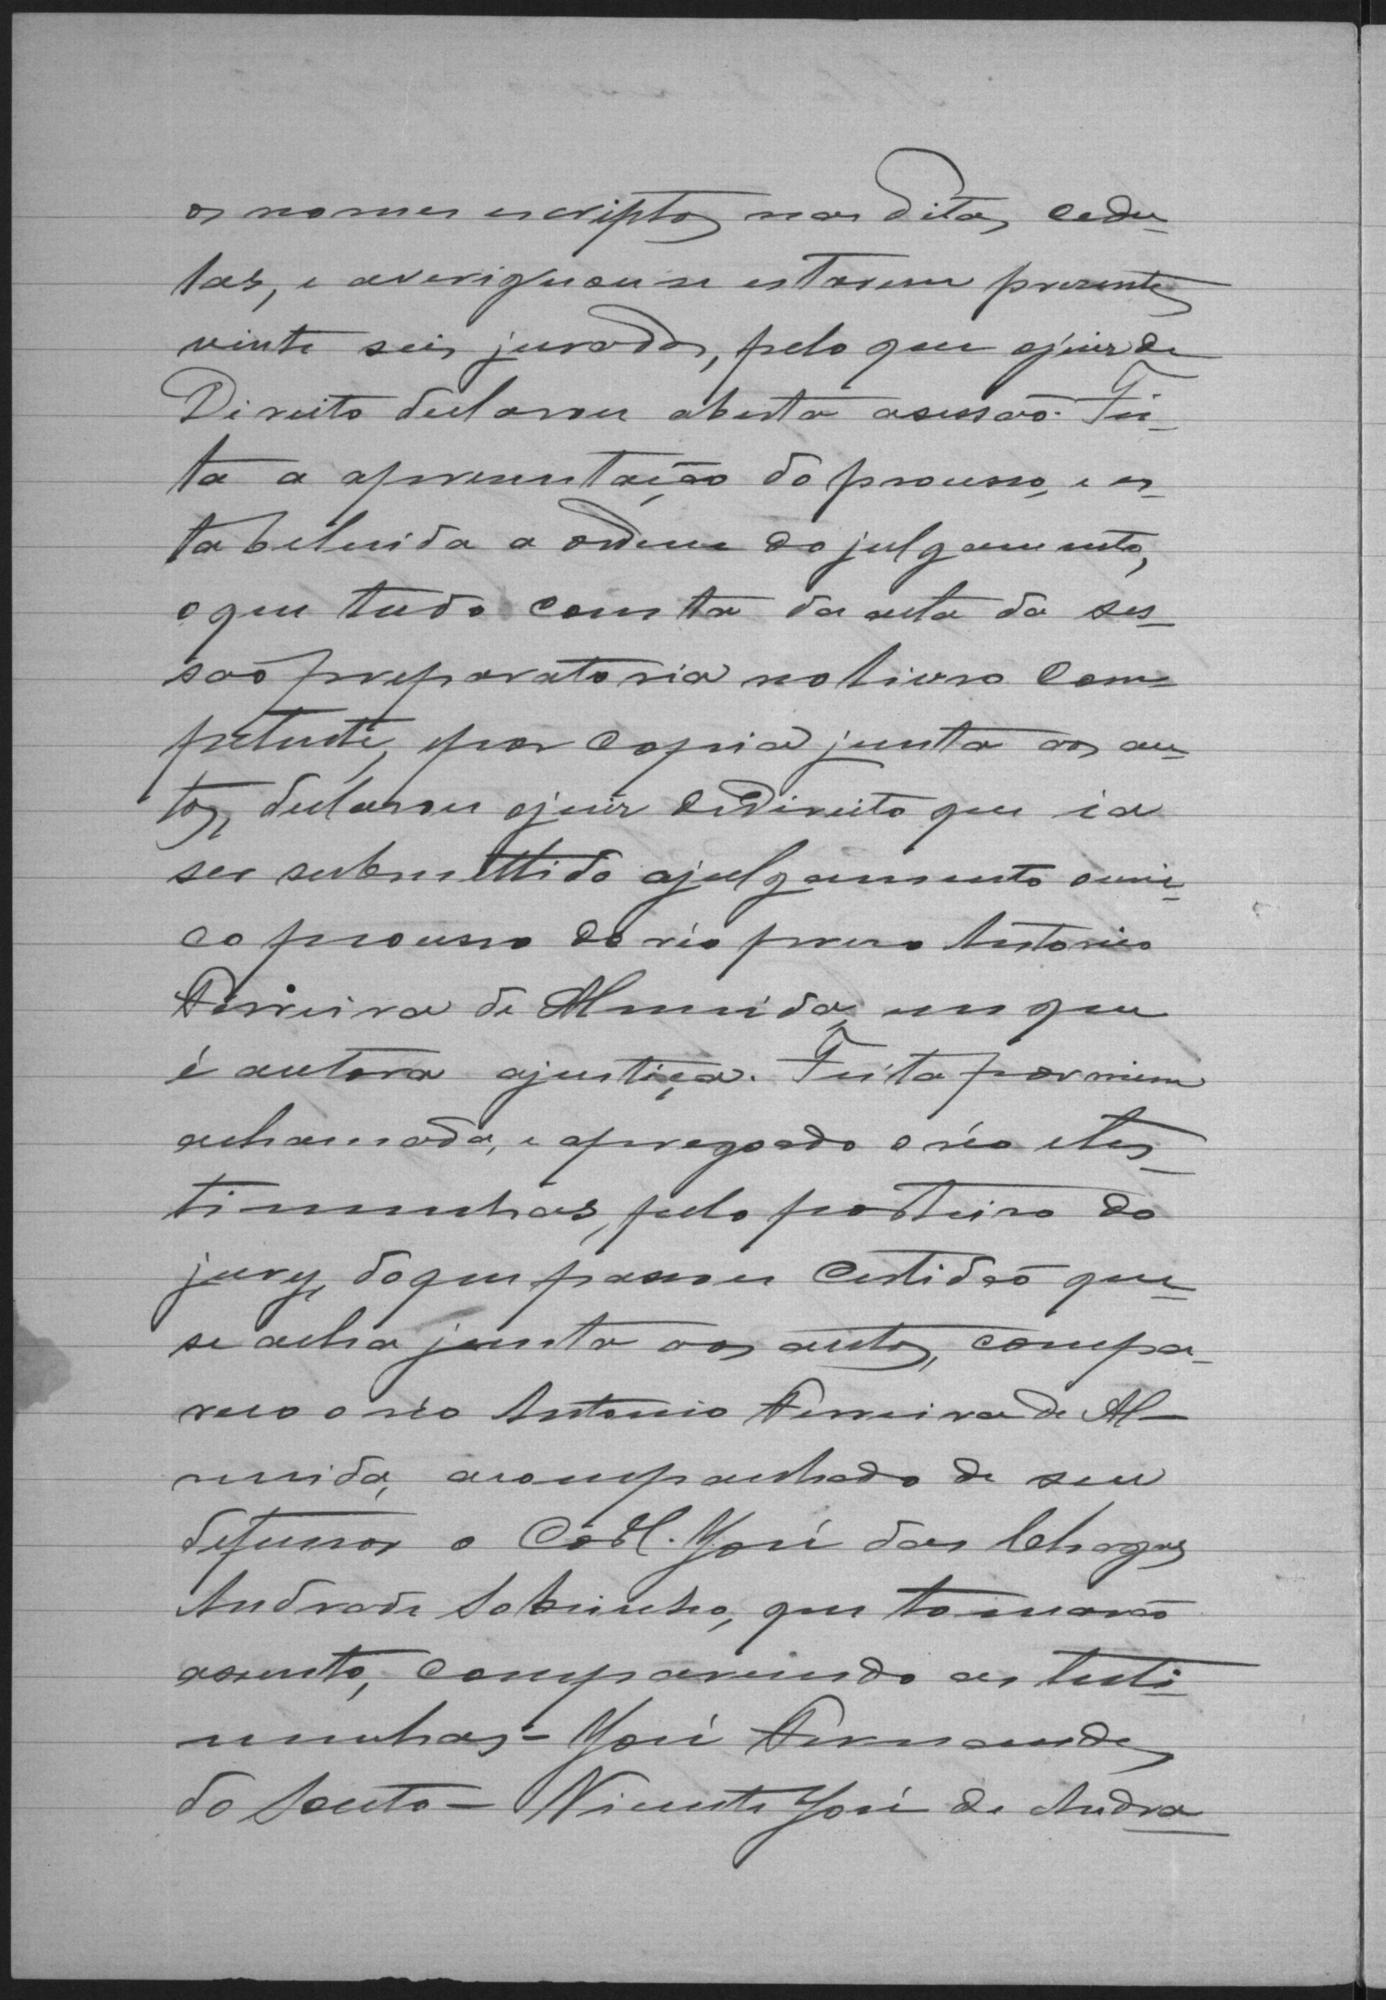 os nomes escriptos nas ditas cedu-
las, e averiguou se estarem presentes
vinte seis jurados, pelo que ojuiz de
Direito declarou aberta asessaõ. Fei-
ta a apresentação do processo, e es-
tabelecida a ordem do julgamento,
oque tudo consta da acta da ses-
saõ preparatoria no livro com-
petente, epor copia junta aos au-
tos, declarou ojuiz deDireito que ia
ser submettido ajulgamento ouni-
co processo do réo preso Antonio
Ferreira de Almeida, em que
é autora ajustiça. Feita por mim
achamada, e apregoado o réo etes-
timunhas, pelo porteiro do
jury, doque passou certidaõ que
se acha junta aos autos, compa-
receo o réo Antonio Ferreira de Al-
meida, acompanhado de seu
defensor o José das Chagas
Andrade Sobrinho, que tomaraõ
assento, comparecendo as testi-
munhas - José Fernandes
do Couto - Vicente José de Andra